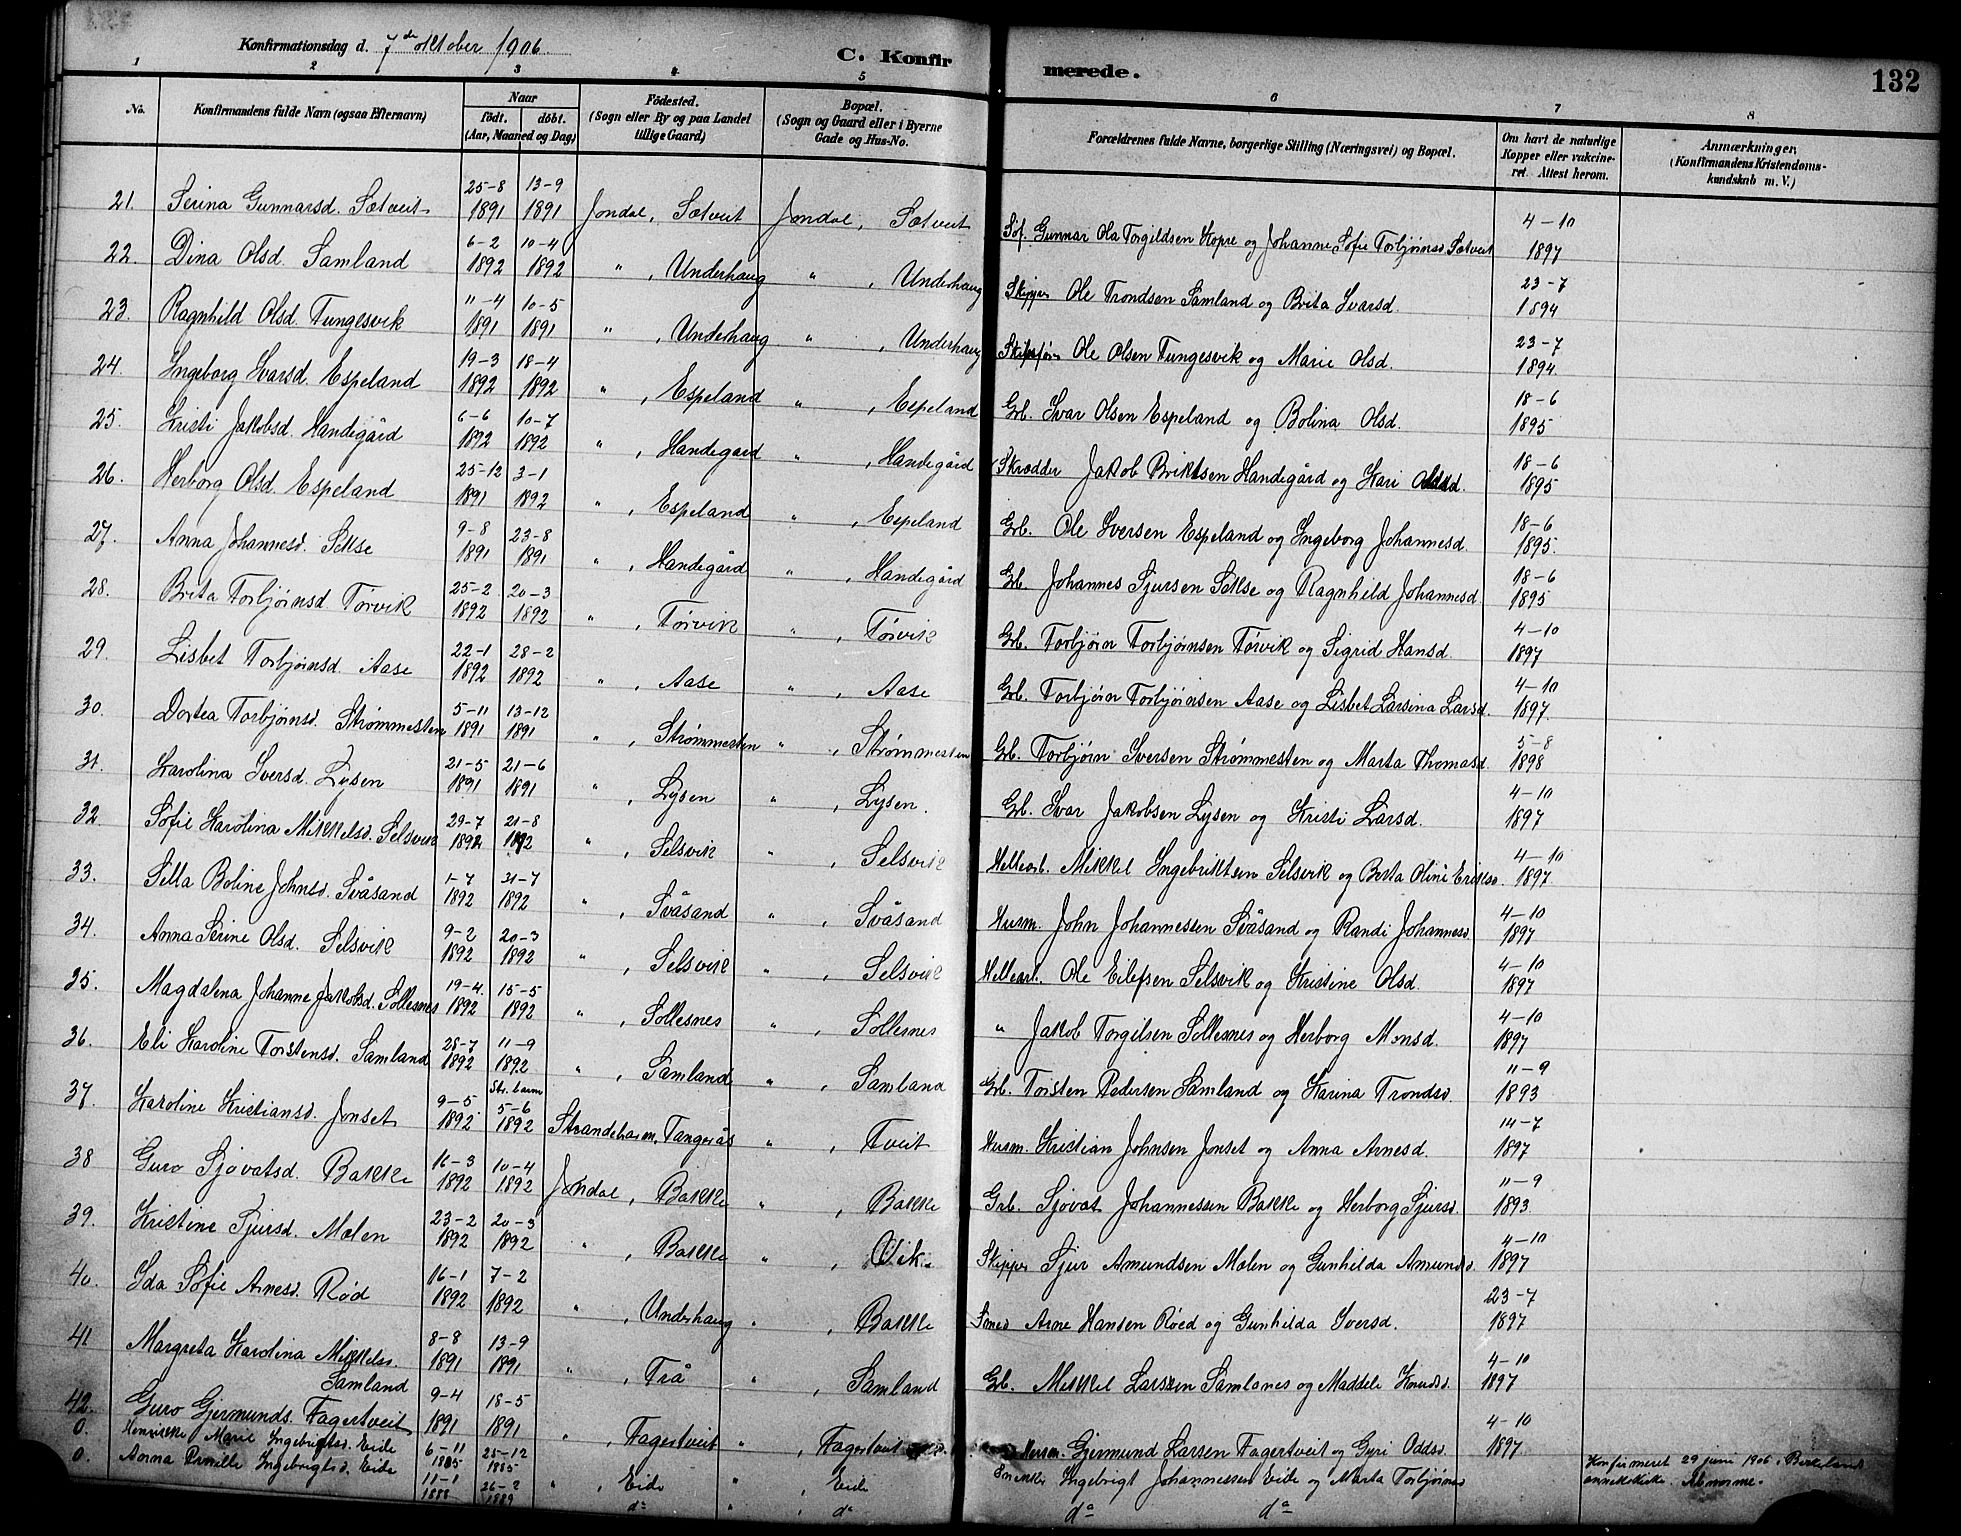 Konfirmationsdag d. 7de oktober 1906. C. Konfirmerede. 132
1 2 3 4 5 6 7 8
No. Konfirmandens fulde Navn (ogsaa Efternavn) Naar født. døbt. (Aar, Maaned og Dag) Fødested. (Sogn eller By og paa Landet tillige Gaard) Bopæl. (Sogn og Gaard eller i Byerne Gade og Hus-No. Forældrenes fulde Navne, borgerlige Stilling (Næringsvei) og Bopæl. Om havt de naturlige Kopper eller vakcineret. Attest herom. Anmærkninger. (Konfirmandens Kristendomskundskab m. V.)
21. Serina Gunnarsd. Sætveit 25-8 1891 13-9 1891 Jondal, Sætveit Jondal, Sætveit Gunnar Ola Torgildsen Kopre og Johanne Sofie Torbjørnsd. Sætveit 4-10 1897
22 Dina Olsd. Samland 6-2 1892 10-4 1892 " , Underhaug " , Underhaug Skipper Ole Trondsen Samland og Brita Ivarsd. 23-7 1894
23. Ragnhild Olsd. Tungesvik 11-4 1891 10-5 1891 " , Underhaug " , Underhaug Ole Olsen Tungesvik og Marie Olsd. 23-7 1894.
24. Ingeborg Ivarsd. Espeland 19-3 1892 18-4 1892 " , Espeland " , Espeland Grb. Ivar Olsen Espeland og Bolina Olsd. 18-6 1895
25. Kristi Jakobsd. Handegård 6-6 1892 10-7 1892 " , Handegård " , Handegård Skrædder Jakob Briktsen Handegård og Kari 18-6 1895
26. Herborg Olsd. Espeland 25-12 1891 3-1 1892 " , Espeland " , Espeland Grb. Ole Iversen Espeland og Ingeborg Johannesd. 18-6 1895.
27. Anna Johannesd. Sekse 9-8 1891 23-8 1891 " , Handegård " , Handegård Grb. Johannes Sjursen Sekse og Ragnhild Johannesd 18-6 1895
28. Brita Torbjørnsd Tørvik 25-2 1892 20-3 1892 " , Tørvik " , Tørvik Grb. Torbjørn Torbjørnsen Tørvik og Sigrid Hansd. 4-10 1897
29. Lisbet Torbjørnsd. Aase 22-1 1892 28-2 1892 " , Aase " , Aase Grb. Torbjørn Torbjørnsen Aase og Lisbet Larsina Larsd. 4-10 1897.
30. Dortea Torbjørnsd. Strømmesten 5-11 1891 13-12 1891 " , Strømmesten " , Strømmesten Grb. Torbjørn Iversen Strømmesten og Marta Thomasd. 5-8 1898
31. Karolina Iversd. Lysen 21-5 1891 21-6 1891 " , Lysen " , Lysen. Grb. Ivar Jakobsen Lysen og Kristi Larsd. 4-10 1897
32. Sofie Karolina Mikkelsd. Selsvik 29-7 1892 21-8 1892 " , Selsvik " , Selsvik Mikkel Ingebriktsen Selsvik og Berta Oline Eriksd. 4-10 1897
33. Sella Boline Johnsd. Svåsand 1-7 1892 31-7 1892 " , Svåsand " , Svåsand Husm. John Johannessen Svåsand og Randi Johannesd 4-10 1897
34. Anna Serine Olsd. Selsvik 9-2 1892 20-3 1892 " , Selsvik " , Selsvik Ole Eilefsen Selsvik og Kristine Olsd. 4-10 1897
35. Magdalena Johanne Jakobsd. Sollesnes 19-4. 1892 15-5 1892 " , Sollesnes " , Sollesnes " Jakob Torgilsen Sollesnes og Herborg Monsd. 4-10 1897
36. Eli Karoline Torstensd. Samland 28-7 1892 11-9 1892 " , Samland " , Samland Grb. Torsten Pedersen Samland og Karina Trondsd. 11-9 1893
37. Karoline Kristiansd. Jonset 9-5. 1892 Str. barm 5-6 1892 Strandebarm, Tangerås " , Tveit Husm. Kristian Johnsen Jonset og Anna Arnesd. 14-7 1897
38 Guro Sjøvatsd. Bakke 16-3 1892 10-4 1892 Jondal, Bakke " , Bakke Grb. Sjøvat Johannessen Bakke og Herborg Sjursd. 11-9 1893
39. Kristine Sjursd. Mælen 23-2 1892 20-3 1892 " , Bakke " , Vik. Skipper Sjur Amundsen Mælen og Gunhilda Amundsd. 4-10 1897
40. Ida Sofie Arnesd. Rød 16-1 1892 7-2 1892 " , Underhaug " , Bakke Arne Hansen Røed og Gunhilda Iversd. 23-7 1897
41 Margreta Karolina Mikkelsd. Samland 8-8 1891 13-9 1891 " , Trå " , Samland Grb. Mikkel Larssen Samlanes og Maddeli Knudsd. 4-10 1897
42. Guro Gjermunds. Fagertveit 9-4 1891 18-5 1891 " , Fagertveit " , Fagertveit Husm. Gjermund Larsen Fagertveit og Guri Oddsd. 4-10 1897
0. Henrikke Marie Ingebrigtsd. Eide 6-11 1885 25-12 1885 " , Eide " , Eide Enemke Ingebrigt Johannessen Eide og Marta Torbjørnsd Konfirmeret 29 juni 1906, Birkeland annekskirke. Abnorme.
0. Anna Pernille Ingebrigtsd. Eide 11-1 1888 26-2 1889 do " , do do do